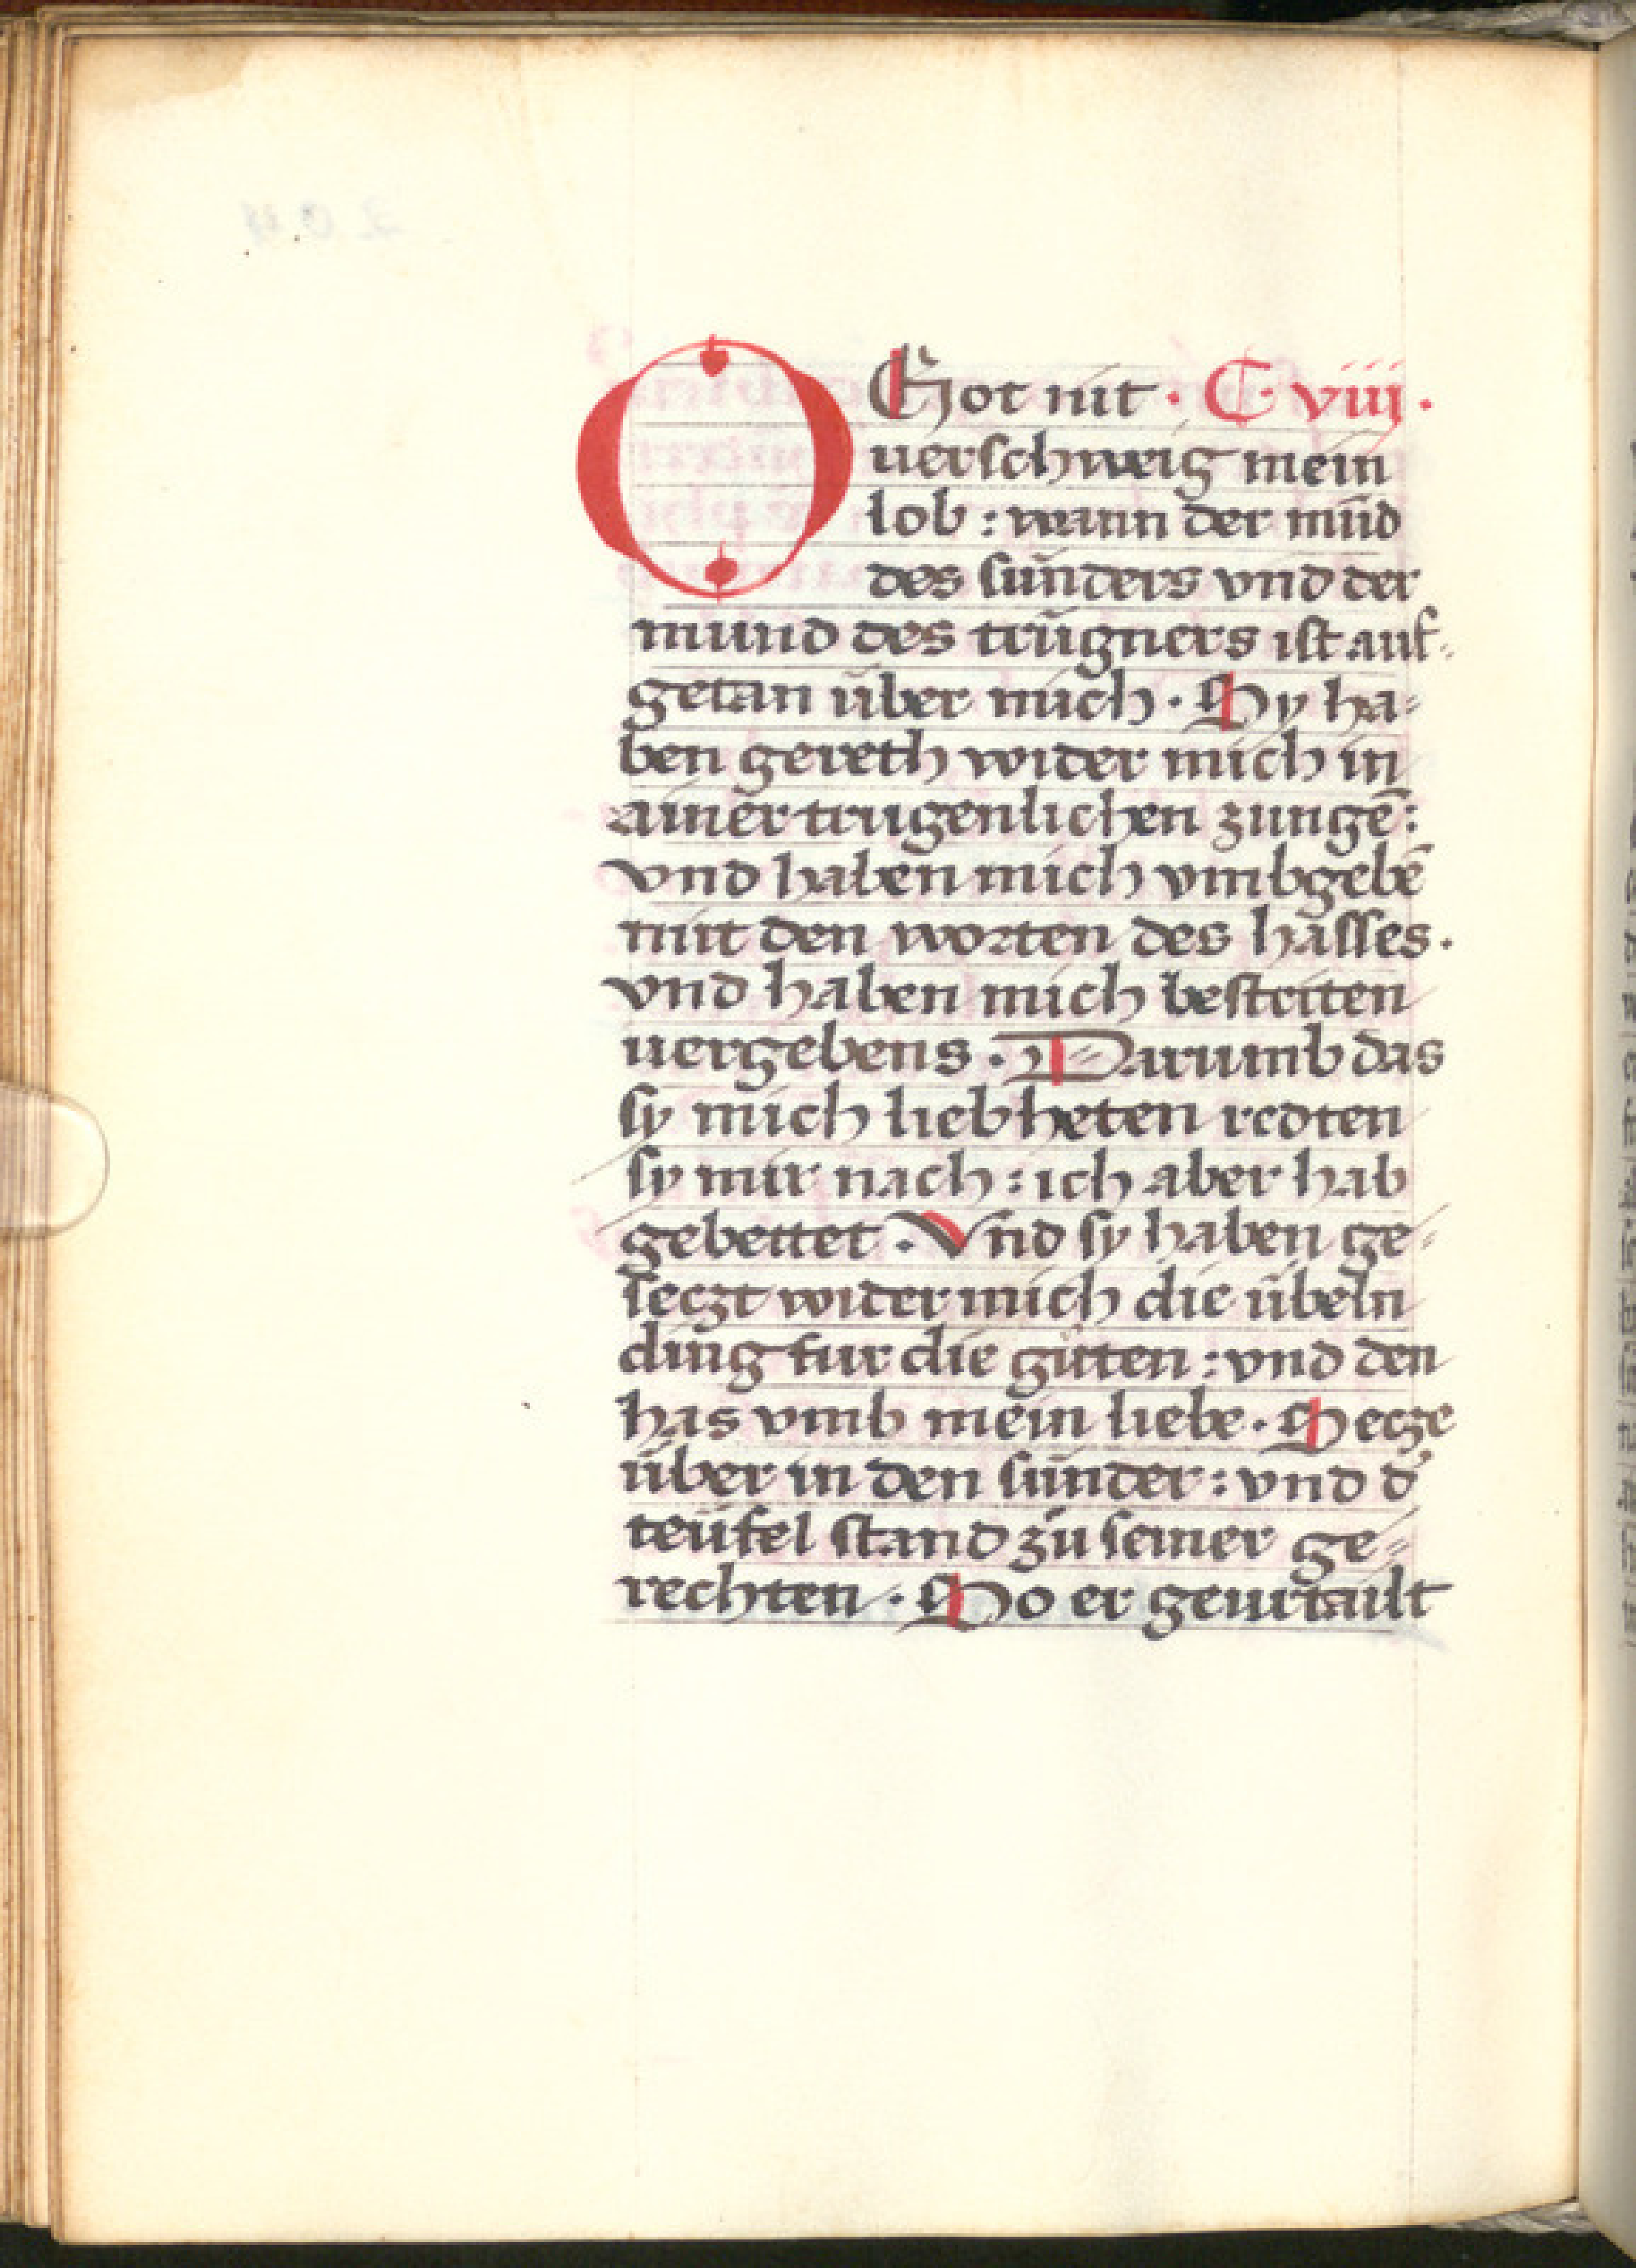 O Got nit · C · viij ·
uerschweig mein
lob : wann der mūd
des sünders vnd der
mund des trŭgners ist auf-
getan über mich · Sy ha-
ben gereth wider mich in
ainer trugenlichen zungē :
vnd haben mich vmbgebē
mit den worten des hasses ·
vnd haben mich bestriten
uergebens · Darumb das
sy mich lieb heten redten
sy mir nach : ich aber hab
gebettet · Vnd sy haben ge-
seczt wider mich die übeln
ding fur die gůten : vnd den
has vmb mein liebe · Secze
über in den sünder : vnd d'
teüfel stand zů seiner ge-
rechten · So er geurtailt